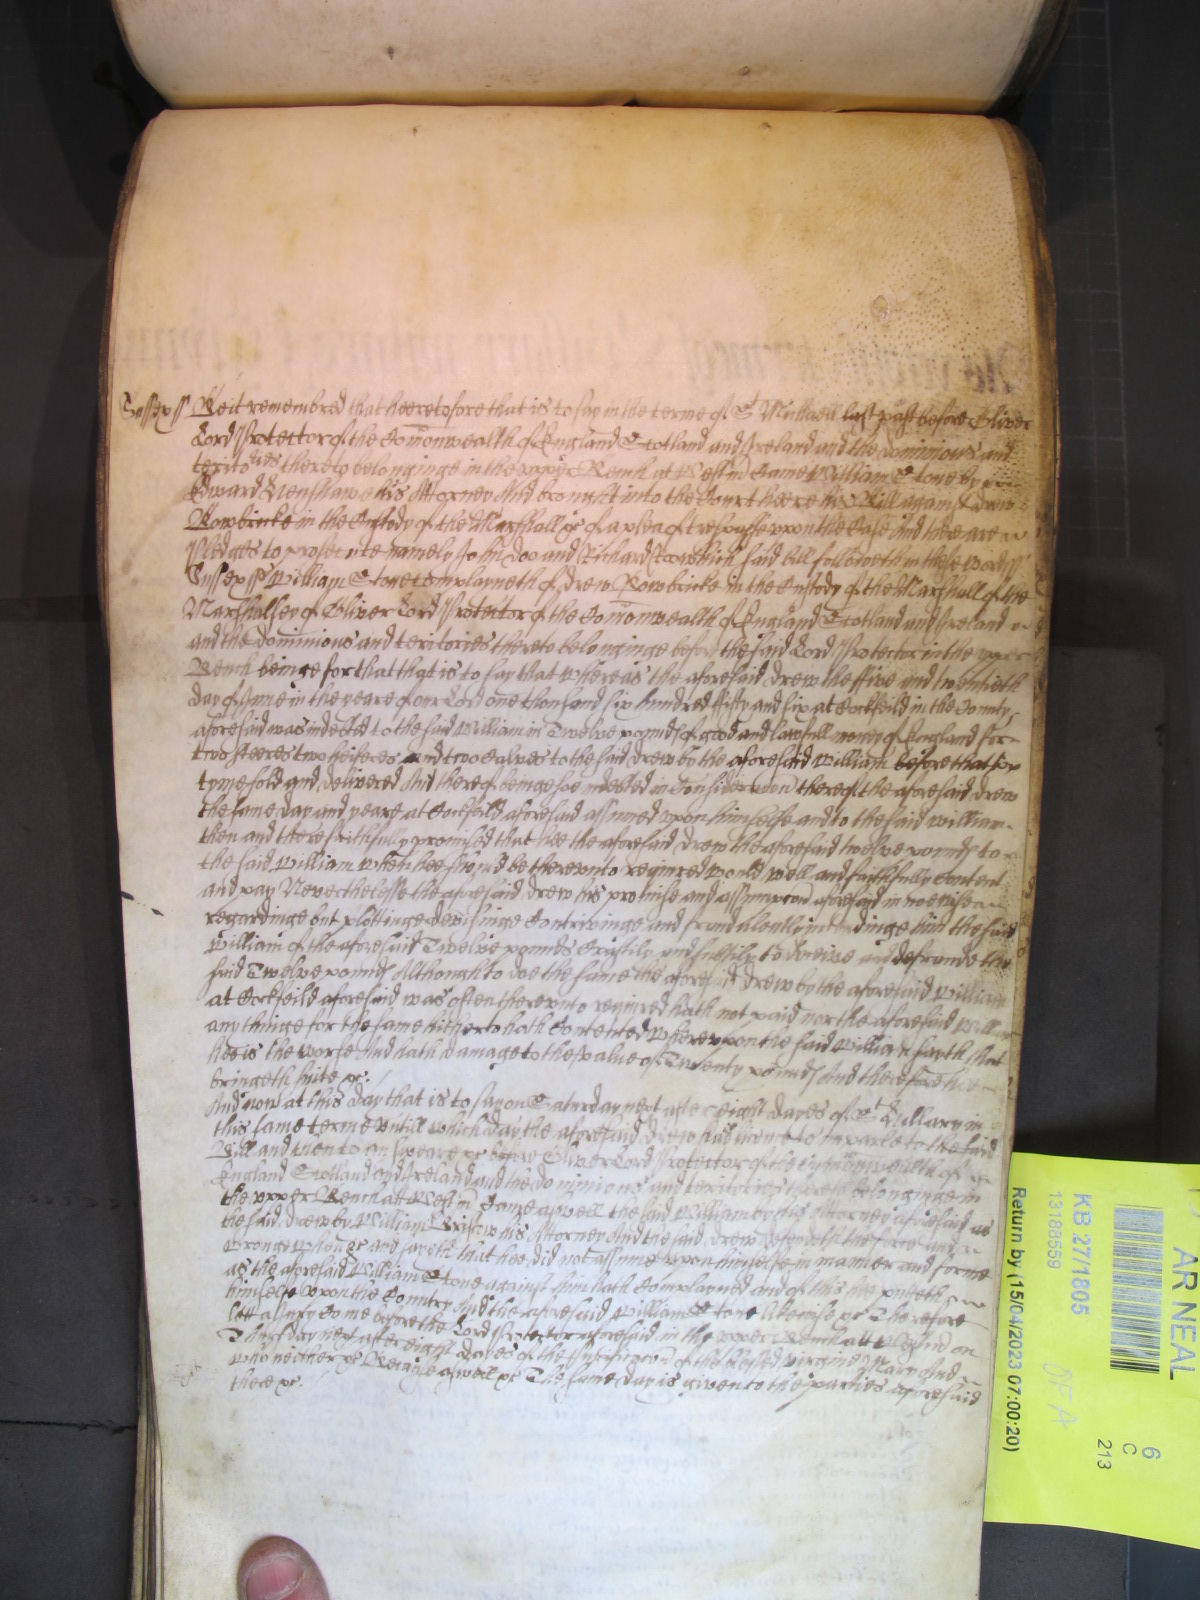 Sussex ss Beit remembred that heeretofore that is to say in the terme of St Michaell last past before Oliver
Lord Protector of the Comonwealth of England Scotland and Ireland and the dominions and
teritories thereto belonginge in the upper Bench at Westm Came William Stone by
Edward Henshaw his Attorney And brought into the Court heere his Bill against drew
Rowbricke in the Custody of the Marshall &c of a plea of trespasse upon the Case And there are
Pledges to prosecute namely John doo and Richard Roo which said bill followeth in these words ss
Sussex ss William Stone complayneth of drew Rowbricke in the Custody of the Marshall of the
Marshallsey of Oliver Lord Protector of the Comonwealth of England Scotland and Ireland
and the dominions and teritories thereto belonginge before the said Lord Protector in the upper
Bench beinge for that that is to say that Whereas the aforesaid drew the ffive and twentieth
day of June in the yeare of our Lord one thousand six hundred ffifty and six at Cockfeild in the County
aforesaid was indebted to the said William in Twelve pounds of good and lawfull money of England for
two steeres two heiferes and two Calves to the said drew by the aforesaid William before that
tyme sold and delivered And thereof beinge soe indebted in Consideracon thereof the aforesaid drew
the same day and yeare at Cockfeild aforesaid assumed upon himselfe and to the said william
then and there faithfully promised that hee the aforesaid drew the aforesaid twelve pounds to
the said William When hee should be thereunto required would well and faithfully Content
and pay Neverthelesse the aforesaid drew his promise and assumpcon aforesaid in noe wise
regardinge but plottinge devisinge Contrivinge and fraudulently intendinge him the said
William of the aforesaid Twelve pounds Craftily and subtily to deceive and defraude the
said Twelve pounds Although to doe the same the aforesaid drew by the aforesaid William
at Cockfeild aforesaid was often thereunto required hath not paid nor the aforesaid William
any thinge for the same hitherto hath Contented Whereupon the said William sayth that
hee is the worse And hath damage to the value of Twenty pounds And therefore hee
bringeth suite &c.
And now at this day that is to say on Saturday next after eight dayes of St Hillary in
this same terme untill which day the aforesaid drew had licence to imparle to the said
Bill and then to answeare &c before Oliver Lord Protector of the Comonwealth of
England Scotland and Ireland and the dominions and teritories thereto belonginge in
the upper Bench at Westm Came aswell the said William by his Attorney aforesaid as
the said drew by William Bristow his Attorney And the said drew defendeth the force and
wronge When &c and sayeth that hee did not assume upon himselfe in manner and forme
as the aforesaid William Stone against him hath Complayned and of this hee putteth
himselfe upon the Country And the aforesaid William Stone likewise &c Therefore
lett a Jury Come before the Lord Protector aforesaid in the upper Bench att Westm on
Thursday next after eight dayes of the Purificacon of the blessed virgine Mary And
who neither &c Recognize aswell &c The same day is given to the parties aforesaid
there &c.
AR NEAL
KB 27/1805
13188559
Return by (15/04/2023 07:00:20)
6
C
213